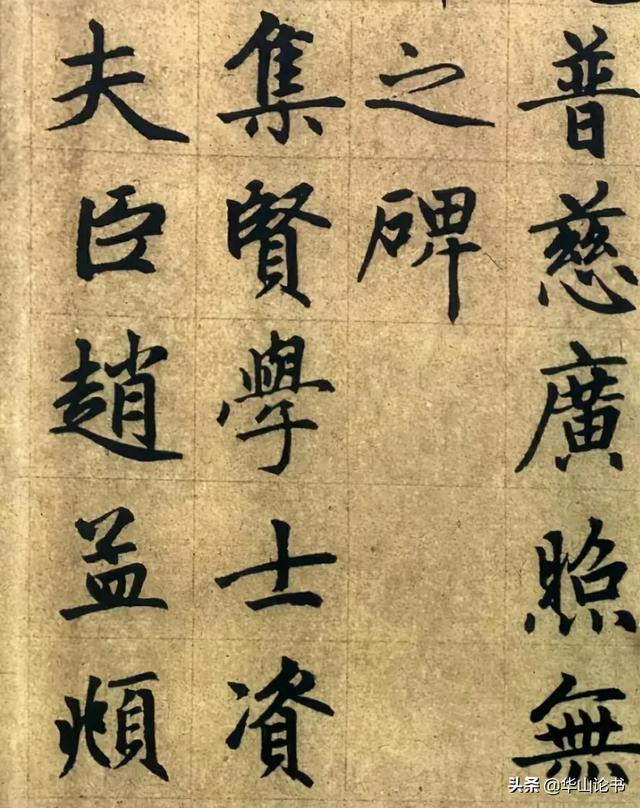 普慈廣照無
之碑
集賢學士資
夫臣趙孟頫
头条 @华山论书